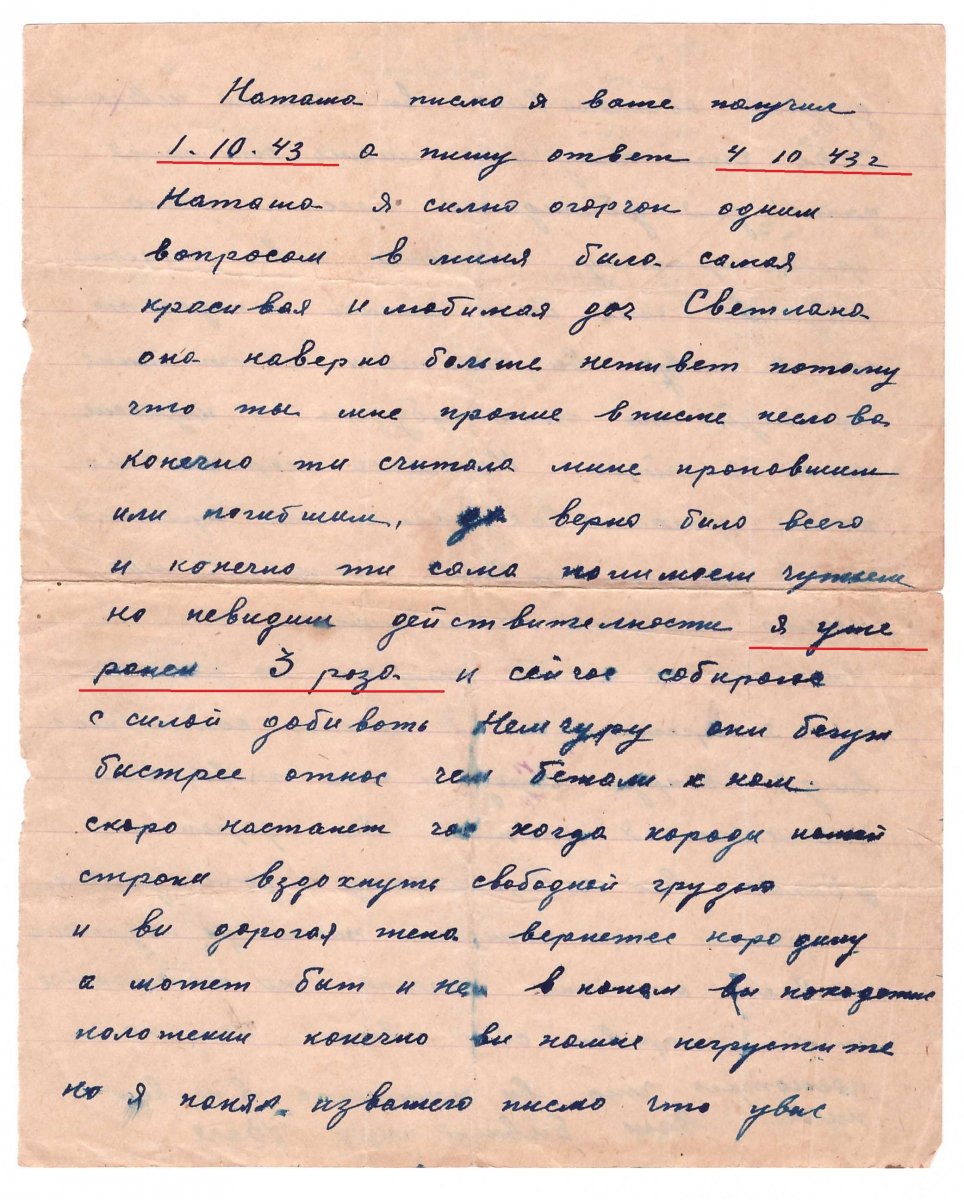 Наташа писмо я ваше получил
1.10.43 а пишу ответ 4 10 43г
Наташа я силно огорчон одним
вопросом в миня была самая
красивая и любимая доч Светлана
она наверно больше неживет потому
что ты мне проние в писме неслова
конечно ти считала мине пропавшим
или погибшим, да верно било всего
и конечно ти сама
но невидиш действителности я уже
ранен 3 раза и сейчас собираюс
с силой добивать Немчуру они бегут
быстрее от нас чем бежали к нам.
скоро настанет час когда народи нашей
страни вздохнуть свободней грудью
и ви дорогая жена вернетес народину
а может быт и не в каком ви находитис
положении конечно ви помне негрустите
но я понял извашего писмо что увас